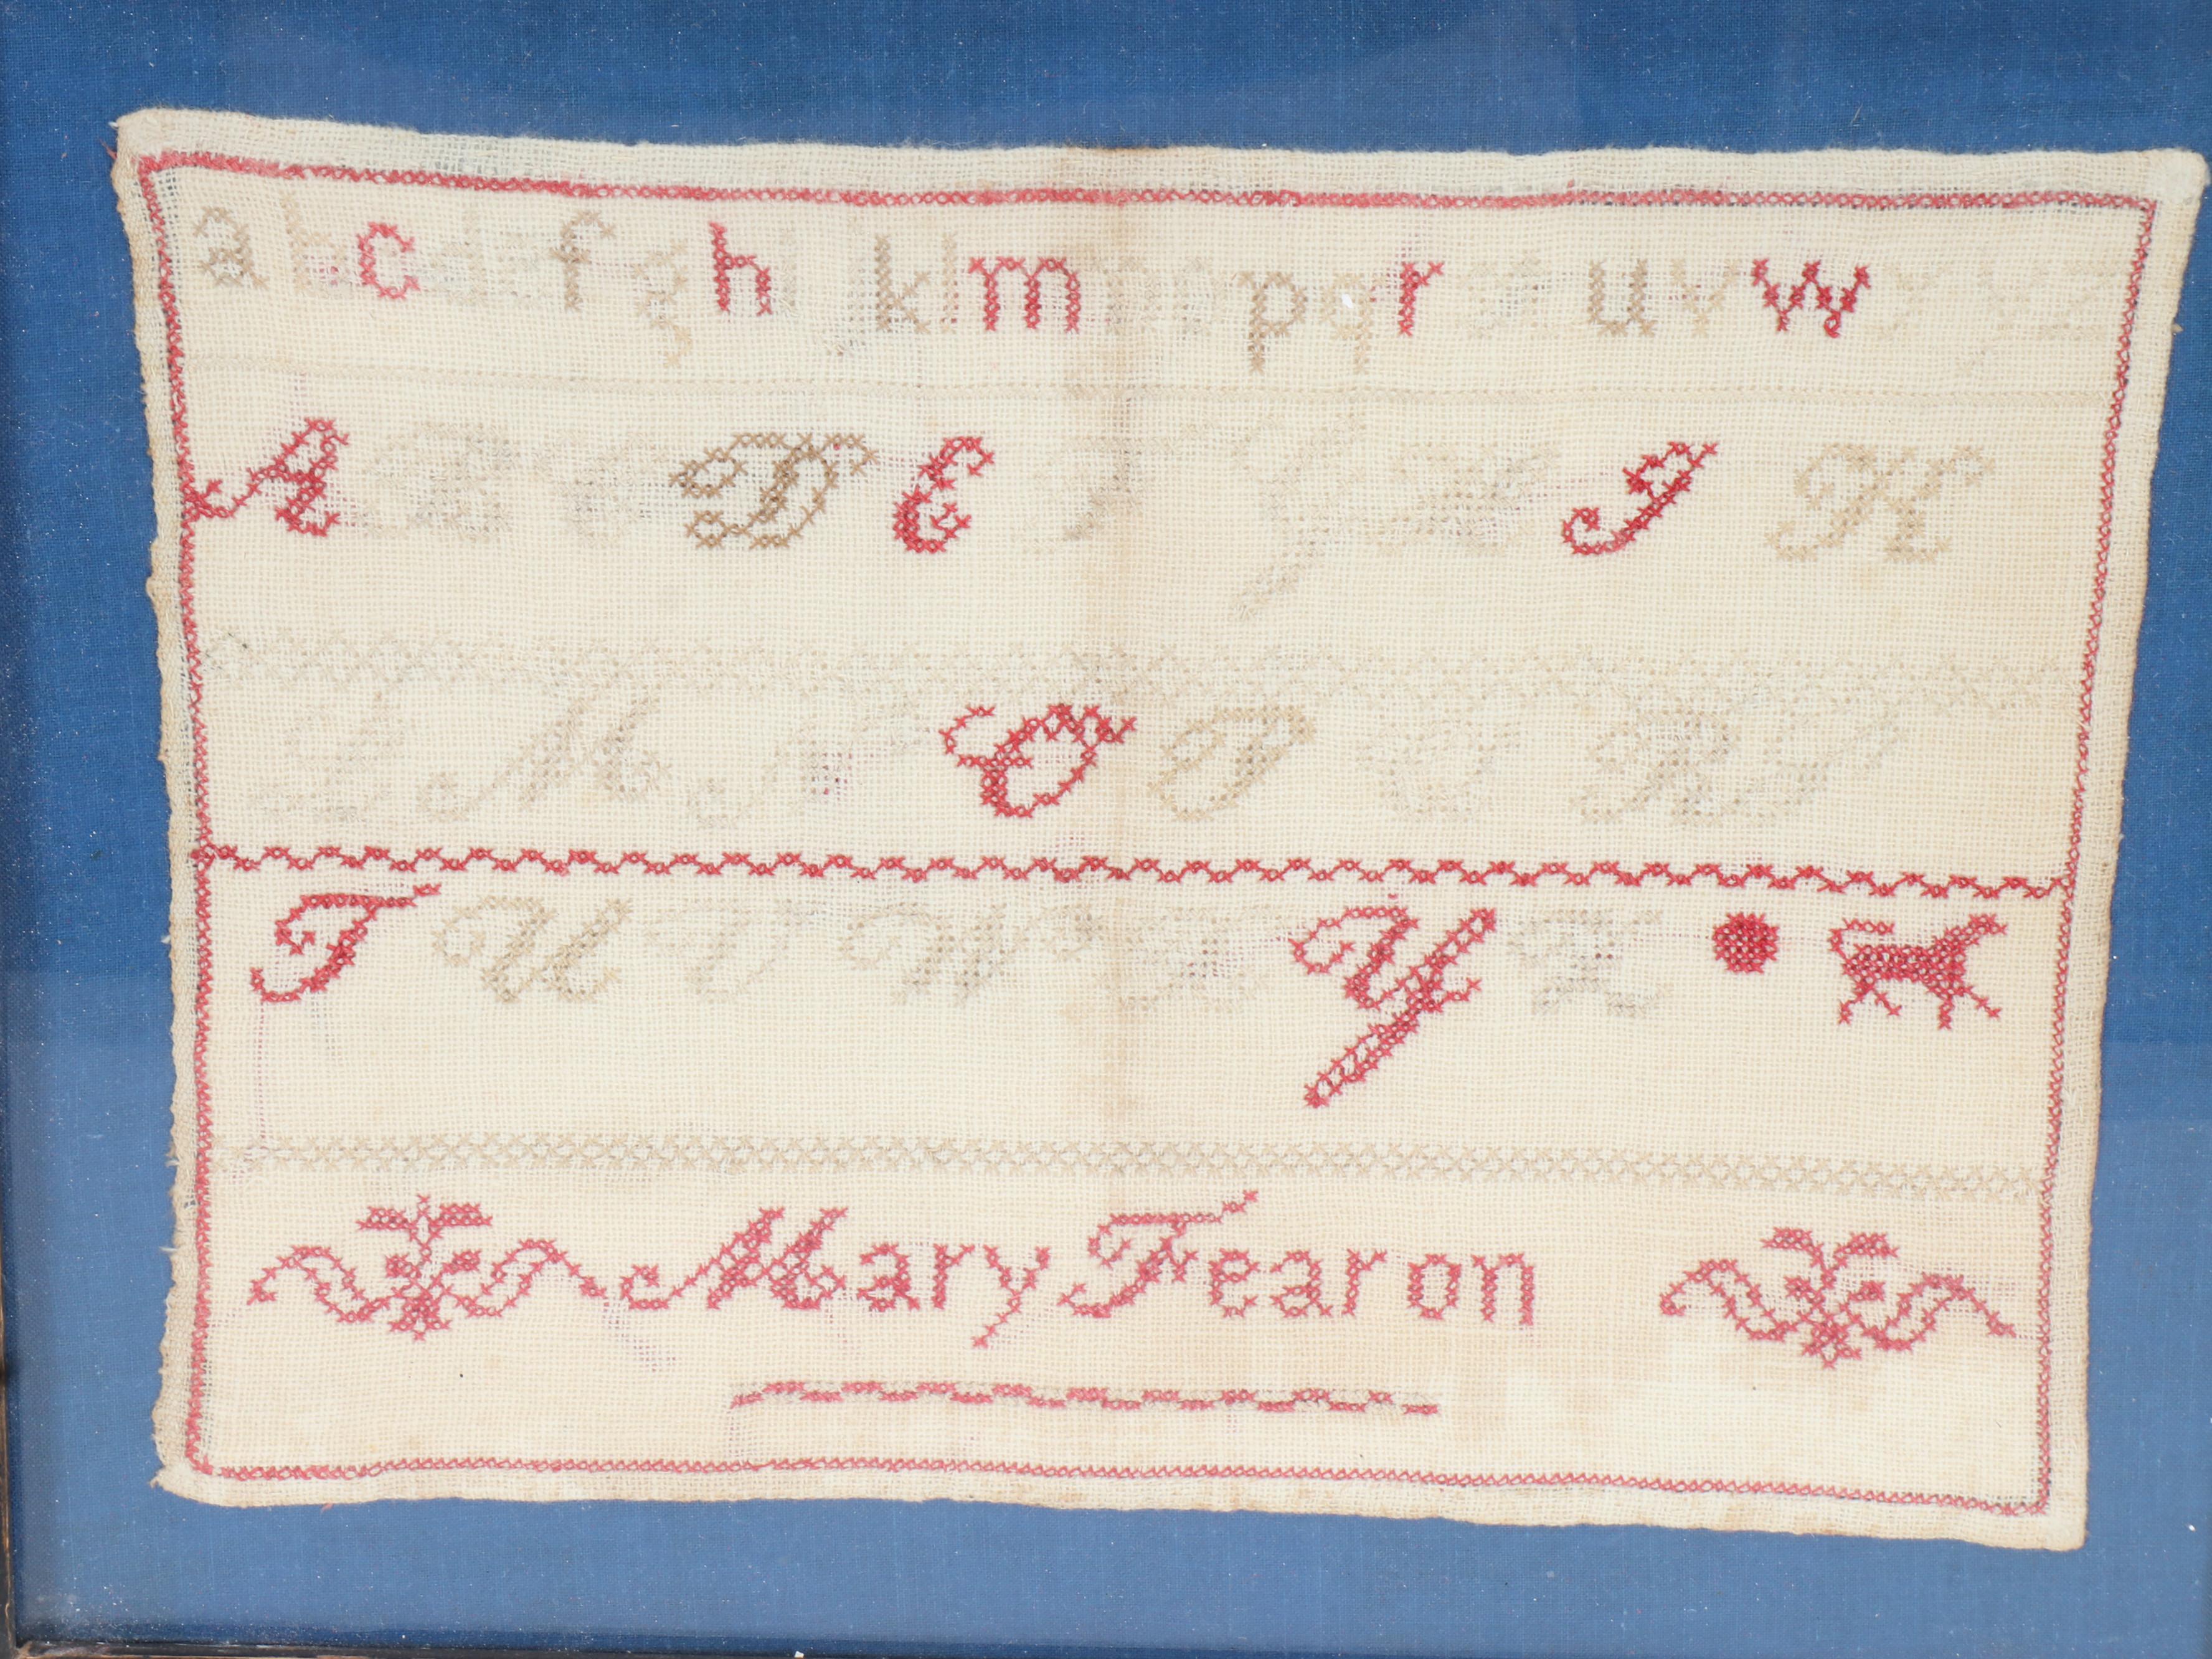 a b c d e f g h i j k l m n o p q r s t u v w x y z
A B C D E F G H I K
L M N O P Q R S
T U V W X Y Z
Mary Fearon